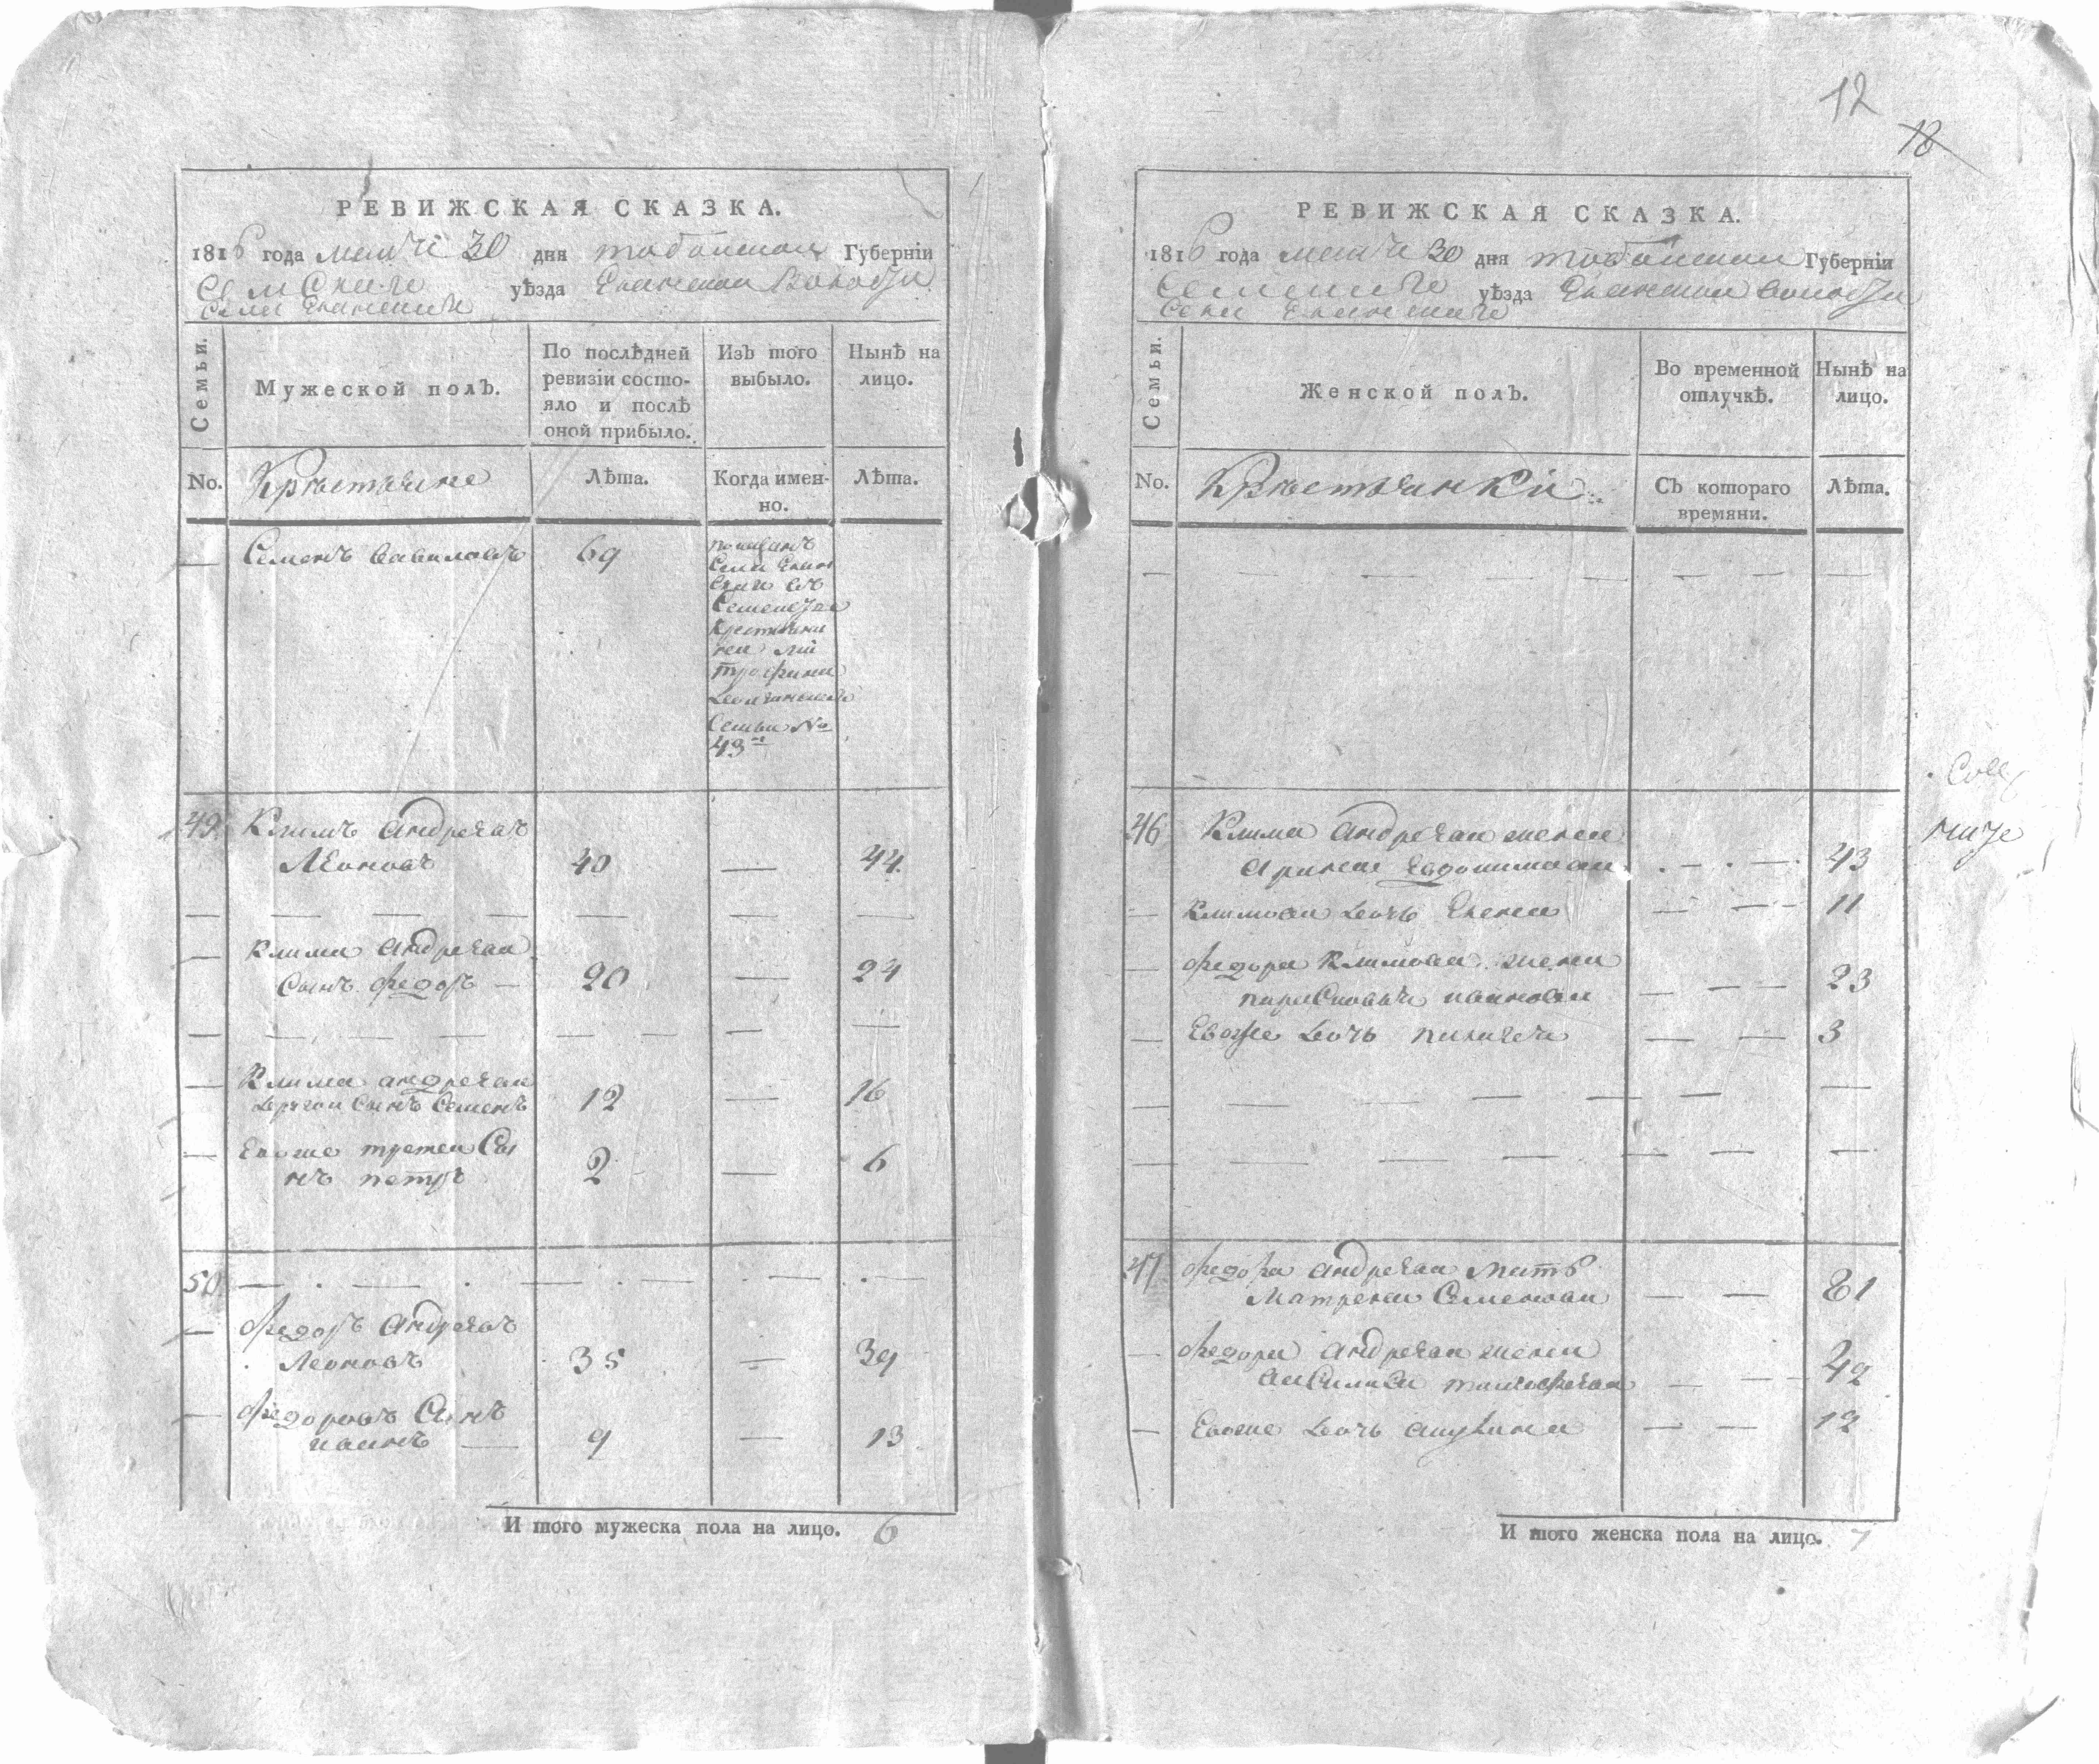 12
18
РЕВИЖСКАЯ СКАЗКА.
1816 года маия 30 дня тобольской Губерніи
уѣзда Еланской Волости
Села Еланскаго
Семьи.
Мужеской полъ.
По послѣдней ревизіи состо-
яло и послѣ
оной прибыло.
Изъ того
выбыло.
Нынѣ на
лицо.
No.
Крѣстьяне
Лѣта.
Когда имен-
но.
Лѣта.
Семенъ вавиловъ 69
Села Елан
въ
Семействе
Трофима
Семьи №
43
49 Климъ андреевъ
Леоновъ 40 — 44
Клима андреева
сынъ федоръ — 20 — 24
Клима андреева
другой сынъ Семенъ 12 — 16
Евоже третей Сы
нъ петръ 2 — 6
50
федоръ андреевъ
Леоновъ 35 — 39
федоровъ Сынъ
иванъ — 9 — 13
И того мужеска пола на лицо. 6
РЕВИЖСКАЯ СКАЗКА.
1816 года маия 30 дня тобольской Губерніи
уѣзда Еланской волости
Села Еланскаго
Семьи.
Женской полъ.
Во временной
отлучкѣ.
Нынѣ на
лицо.
No.
Крѣстьянки
Съ котораго
времяни.
Лѣта.
46 Клима андреева жена
арина Евдокимова 43
Климова дочь Елена 11
федора Климова жена
парасковья иванова 23
Евоже дочь пелагея 3
47 федора андреева мать
Матрена Семенова 81
федора андреева жена
василиса тимофеева 42
Евоже дочь акулина 12
И того женска пола на лицо. 7